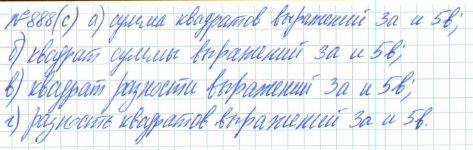 №888(с) а) сумма квадратов выражений 3а и 5в;
б) квадрат суммы выражений 3а и 5в;
в) квадрат разности выражений 3а и 5в;
г) разность квадратов выражений 3а и 5в.